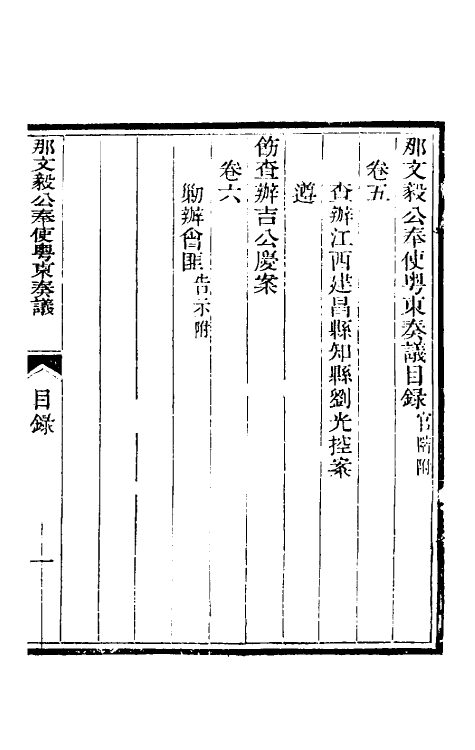 那文毅公奉使粵東奏議目録官階附
卷五
查辦江西建昌縣知縣劉光控案
遵
飭查辦吉公慶案
卷六
勦辦會匪告示附
那文毅公奉使粵東奏議
目録
一